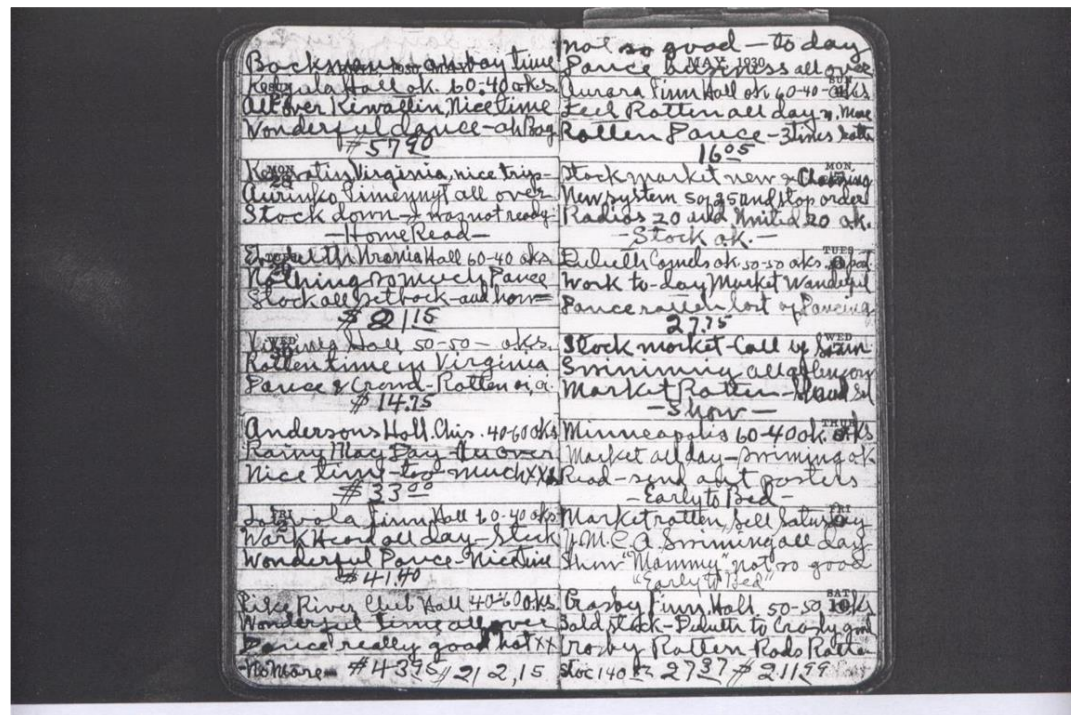 Backmens - oh boy time
Hall ok. 60-40 oks.
All over Kiwallin, Nice time
Wonderful dance - oh Bag
$57.90
MON
28
Virginia, nice trip -
Aurinko Pimennyt all over
Stock down - I was not ready
- Home Read -
Hall 60-40 oks.
29
Nothing so much Dance
Stock all set back - and how -
$21.15
WED
30
Virginia Hall 50-50 - oks.
Rotten time in Virginia
Dance & Crowd - Rotten oi, oi
$14.75
Andersons Hall. Chis. 40-60 oks
Rainy May Day - all over
Nice time - too - much xxx
$33.00
FRI
2
Finn Hall 60-40 oks
Work Hard all day - Stock
Wonderful Dance - Nice time
$41.40
Pike River Club Hall 40-60 oks.
Wonderful time all over
Dance really good hot xx
- No More - $43.95 $212,15
not so good - to day
MAY, 1930
Dance business all over
SUN
4
Aurora Finn Hall ok 60-40 - oks
Feel Rotten all day n. More
Rotten Dance - 3 times Rotten
16.05
MON
5
Stock market new
New system 50, 25 and stop order
Radios 20 and United 20 ok.
- Stock ok. -
TUES
6
Duluth Camels ok 50-50 oks.
Work to-day Market Wonderful
Dance rotten lost of Dancing
27.75
WED
7
Stock market - Call up
Swimming all afternoon
Market Rotten -
- Show -
THUR
8
Minneapolis 60-40 ok. oks
Market all day - swiming ok
Read - send out posters
- Early to Bed -
FRI
9
Market rotten, sell Saturday
Y.M.C.A. Swiming all day
Show "Mammy" not so good
"Early to Bed"
SAT
10
Crosby Finn. Hall. 50-50 oks
Sold stock - Duluth to Crosby good
Crosby Rotten Rods Rotten
Stoc 140 27.37 $211.99